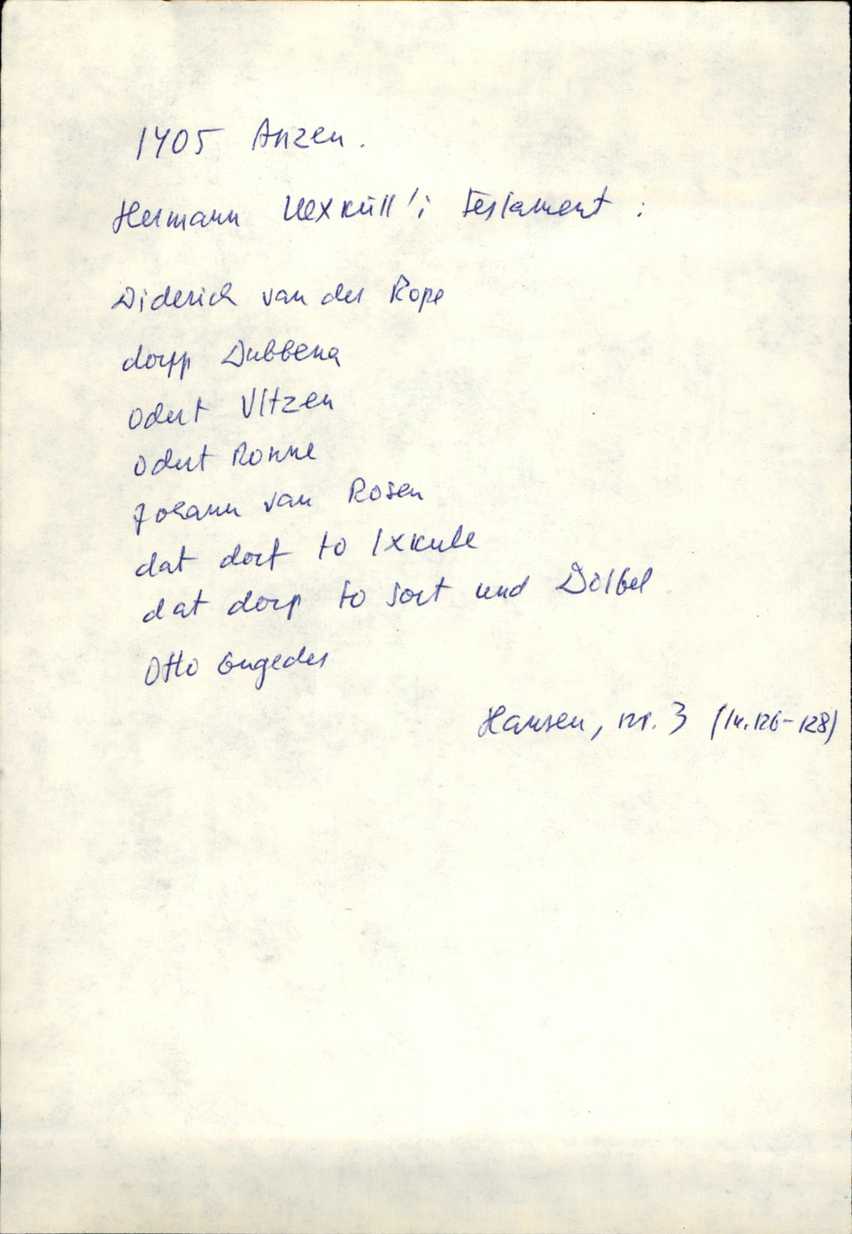 1405 Anzen.
Hermann Uexküll'i Testament:
Diderich van der Rope
dorpp Dubbena
Odert Vltzen
Odert Ronne
Johann van Rosen
dat dorf to Ixkule
dat dorp to Sort und Dolbel
Otto Engedes
Hansen, nr. 3 (lk. 126-128)